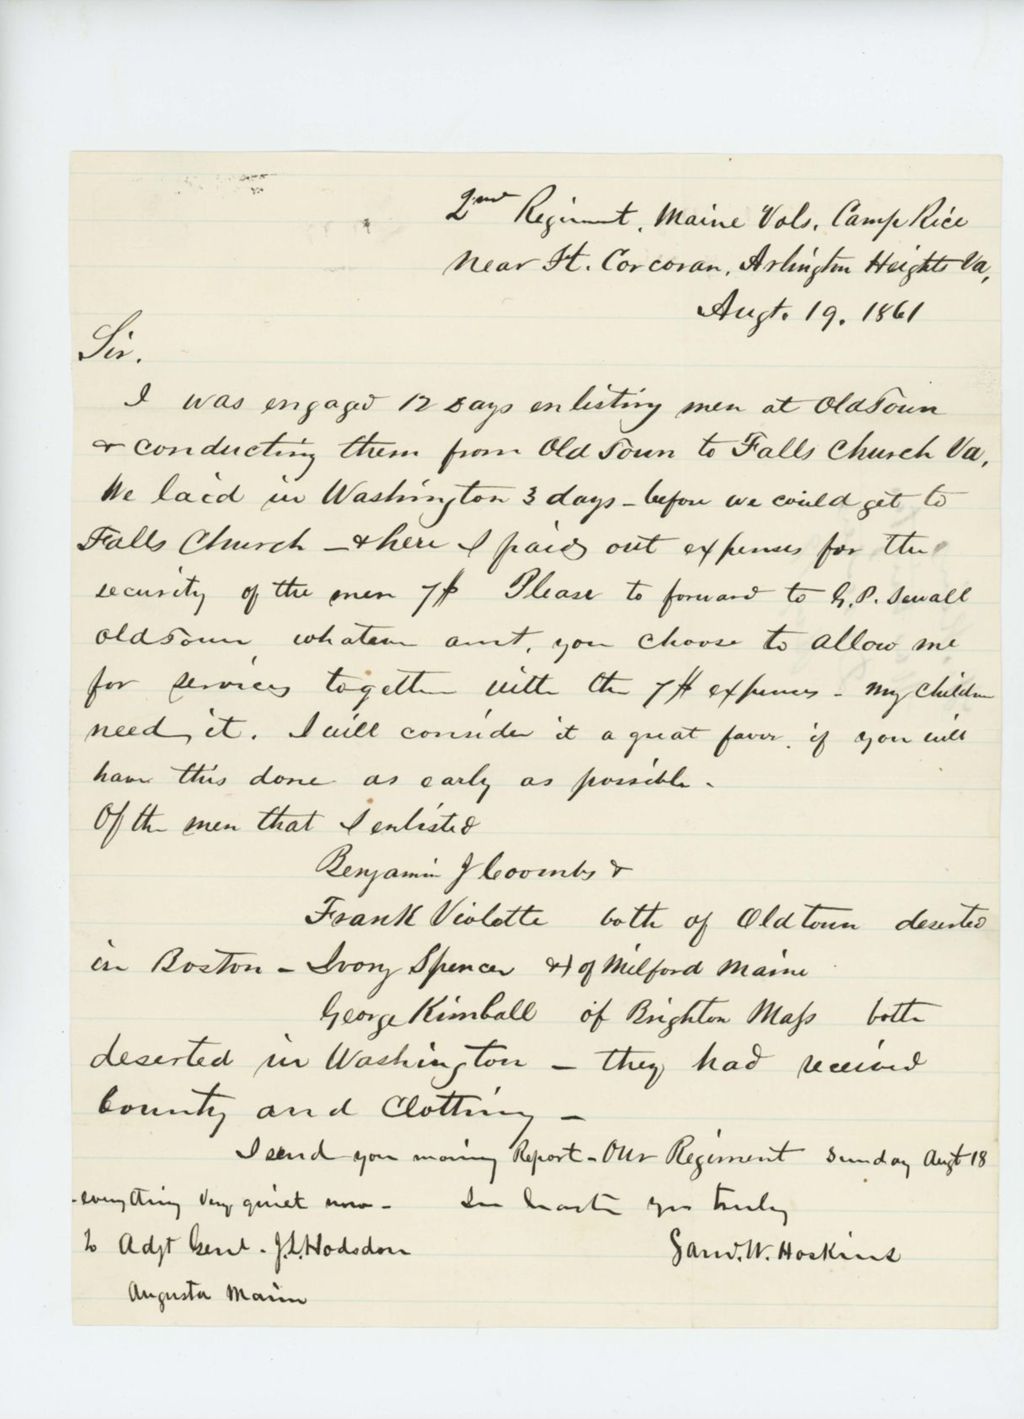 2nd Regiment, Maine Vols. Camp Rice
Near Ft. Corcoran, Arlington Heights Va,
Augt. 19. 1861
Sir.
I was engaged 12 Days enlisting men at Old Town
& conducting them from Old Town to Falls Church Va,
We laid in Washington 3 days - before we could get to
Falls Church - & here I paid out expenses for the
security of the men 7$ Please to forward to G. P. Sewall
Old Town whatever amt, you choose to allow me
for services together with the 7$ expenses - my children
need it. I will consider it a great favor if you will
have this done as early as possible -
Of the men that I enlisted
Benjamin J Coombs &
Frank Violette both of Oldtown deserted
in Boston - Ivory Spencer of Milford Maine
George Kimball of Brighton Mass both
deserted in Washington - they had received
County and Clothing -
I send you morning Report - Our Regiment Sunday Augt 18
- everything very quiet now - In haste yrs truly
to Adjt Genl - J. L. Hodsdon Saml. W. Hoskins
Augusta Maine